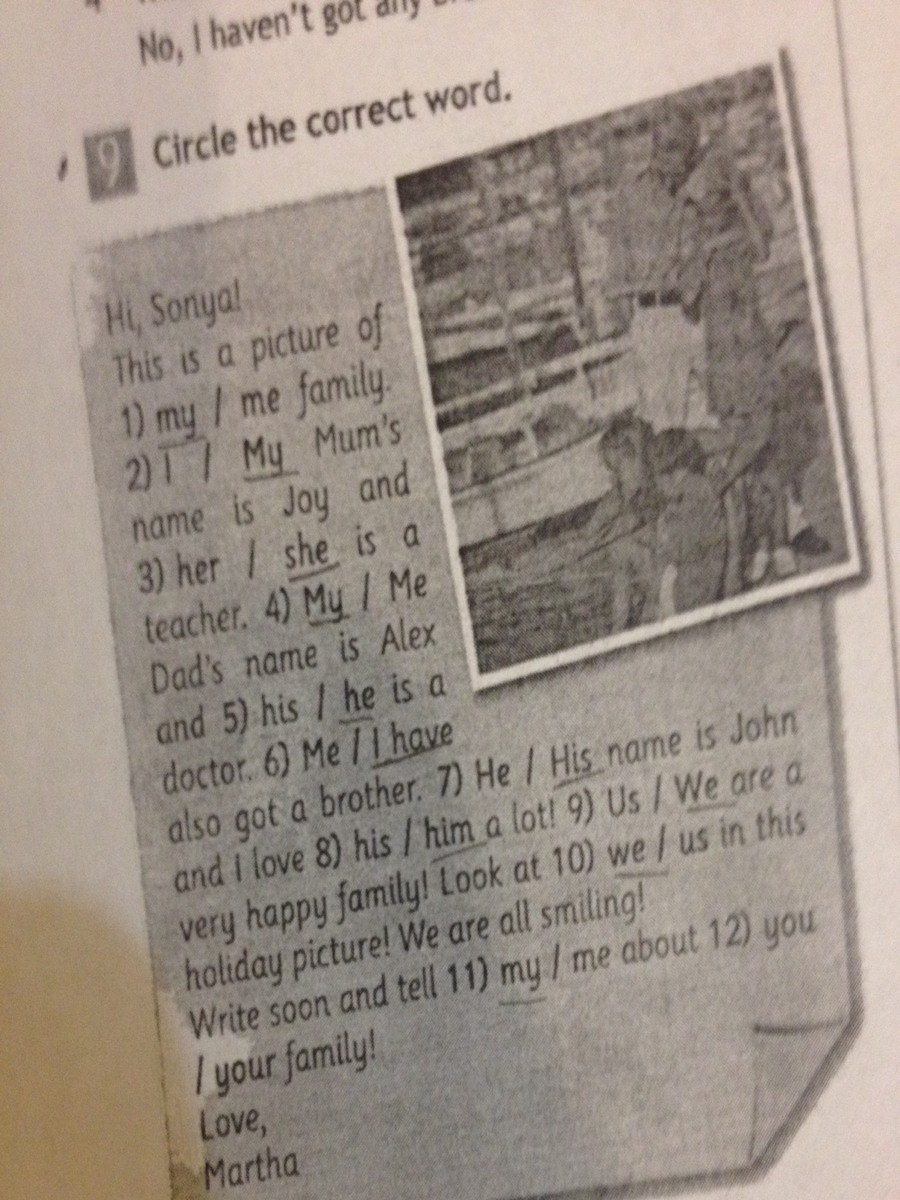 No, I haven't got any
9 Circle the correct word.
Hi, Sonya!
This is a picture of
1) my / me family.
2) I / My Mum's
name is Joy and
3) her / she is a
teacher. 4) My / Me
Dad's name is Alex
and 5) his / he is a
doctor. 6) Me / I have
also got a brother. 7) He / His name is John
and I love 8) his / him a lot! 9) Us / We are a
very happy family! Look at 10) we / us in this
holiday picture! We are all smiling!
Write soon and tell 11) my / me about 12) you
/ your family!
Love,
Martha